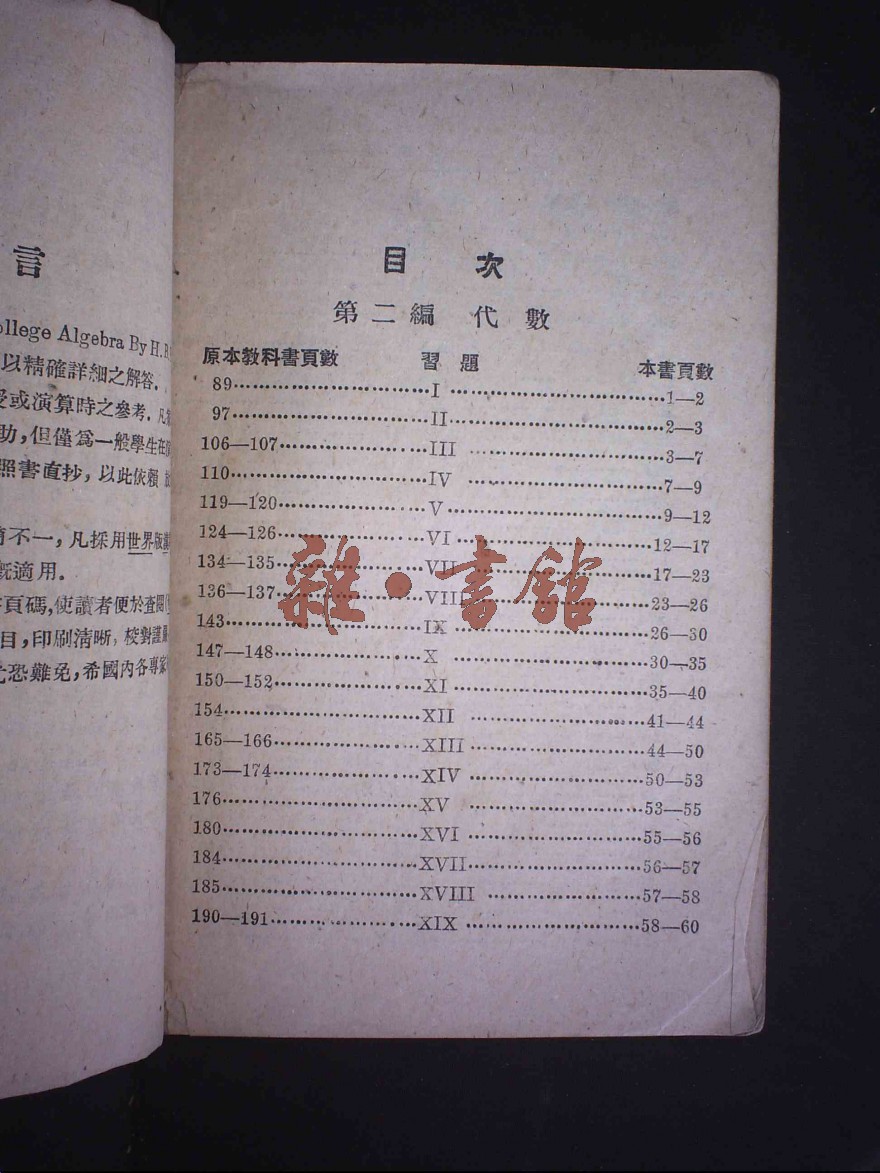 言
ollege Algebra By H.B
以精確詳細之解答.
受或演算時之參考. 凡
助,但僅爲一般學生在
照書直抄, 以此依賴
不一, 凡採用世界版
概適用.
頁碼,使讀者便於査閱
目,印刷清晰, 校對謹
恐難免,希國內各專家
目 次
第二編 代數
原本敎科書頁數 習題 本書頁數
89 I 1—2
97 II 2—3
106—107 III 3—7
110 IV 7—9
119—120 V 9—12
124—126 VI 12—17
134—135 VII 17—23
136—137 VIII 23—26
143 IX 26—30
147—148 X 30—35
150—152 XI 35—40
154 XII 41—44
165—166 XIII 44—50
173—174 XIV 50—53
176 XV 53—55
180 XVI 55—56
184 XVII 56—57
185 XVIII 57—58
190—191 XIX 58—60
雜·書館